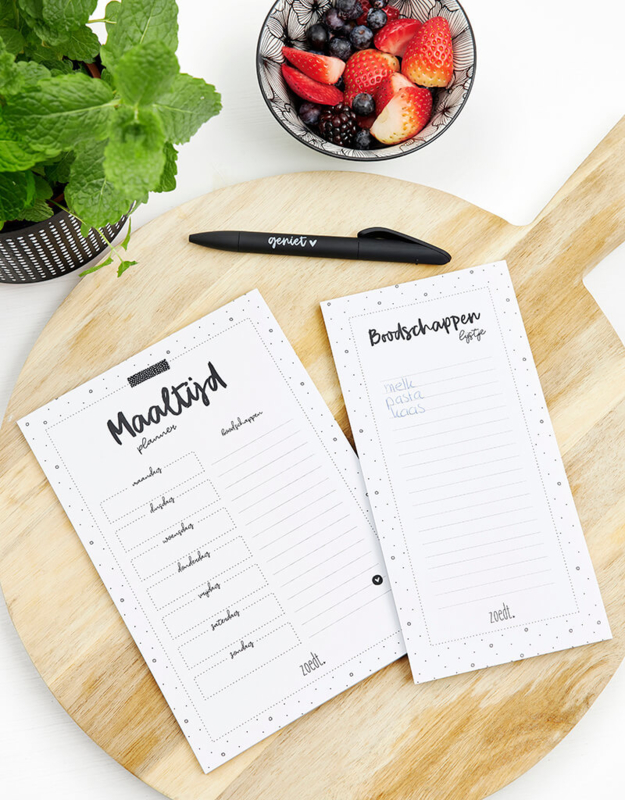 geniet
Maaltijd
planner
boodschappen
maandag
dinsdag
woensdag
donderdag
vrijdag
zaterdag
zondag
zoedt.
Boodschappen
lijstje
melk
pasta
kaas
zoedt.